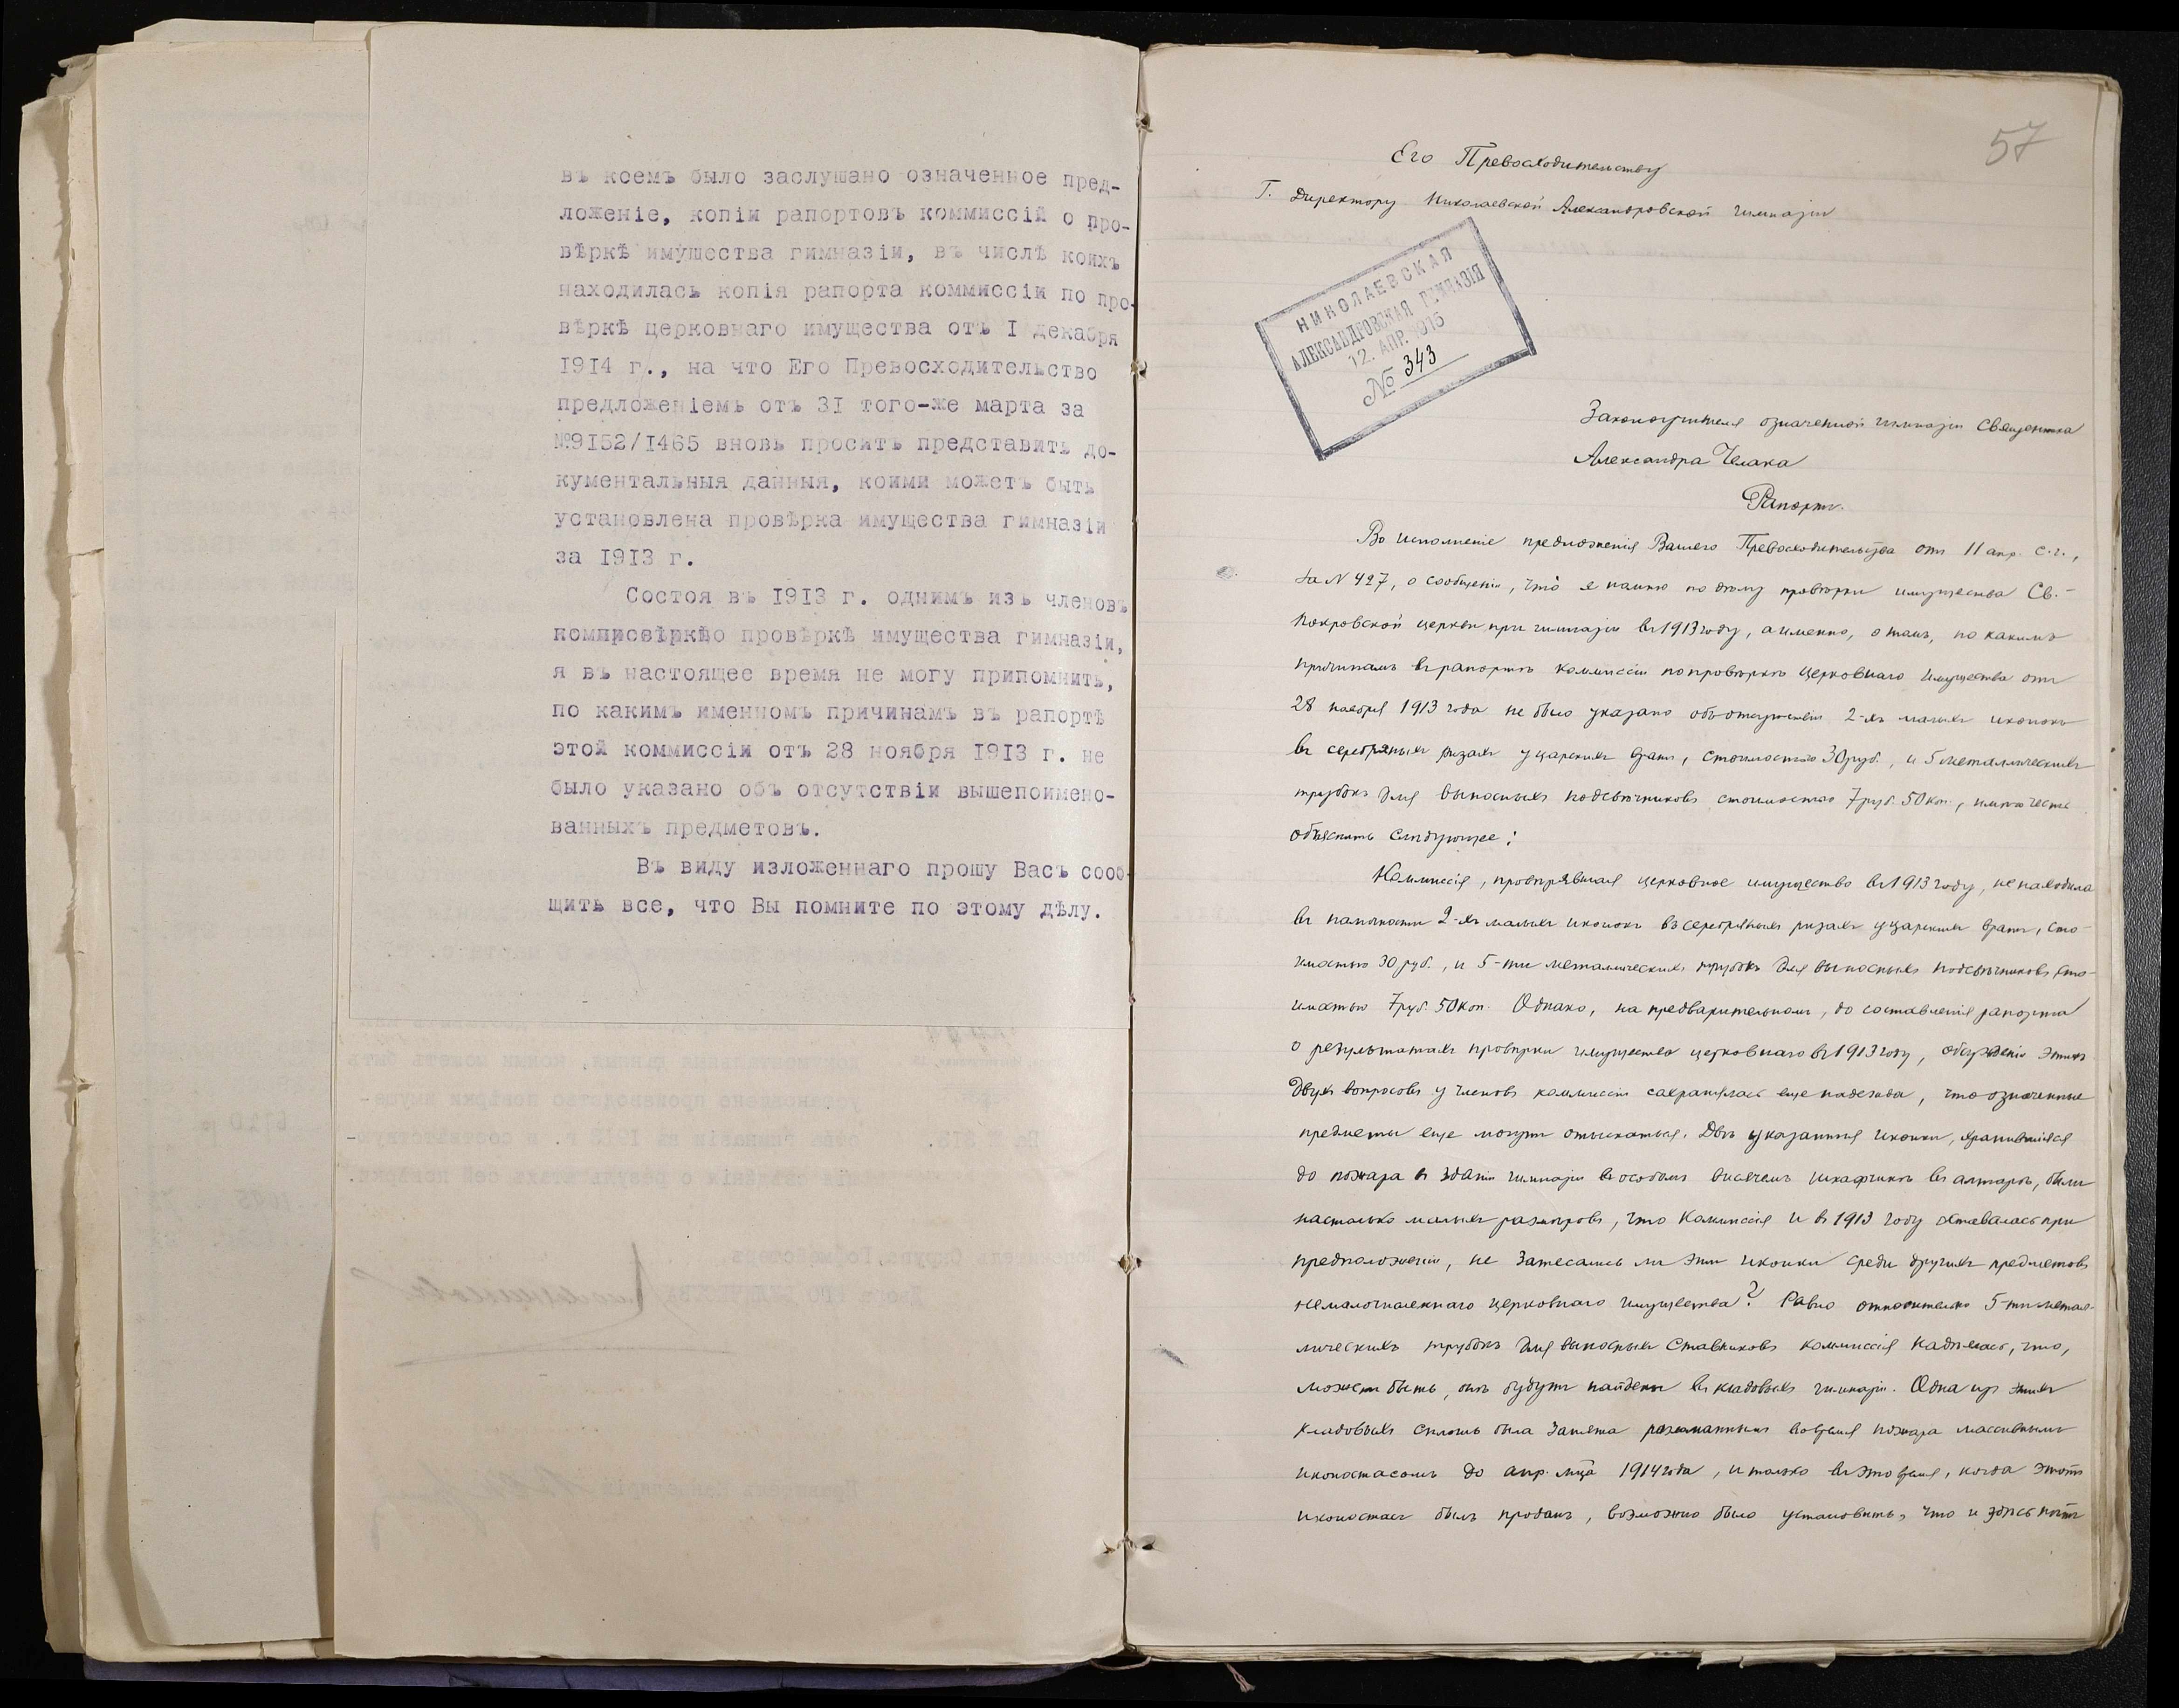 въ коемъ было заслушано означенное пред-
ложеніе, копіи рапортовъ коммиссій о про-
вѣркѣ имущества гимназіи, въ числѣ коихъ
находилась копія рапорта коммиссіи по про-
вѣркѣ церковнаго имущества отъ I декабря
1914 г., на что Его Превосходительство
предложеніемъ отъ 31 того-же марта за
№9152/1465 вновь проситъ представить до-
кументальныя данныя, коими можетъ быть
установлена провѣрка имущества гимназіи
за 1913 г.
Состоя въ 1913 г. однимъ изъ членовъ
провѣркѣ имущества гимназіи,
я въ настоящее время не могу припомнить,
по какимъ именномъ причинамъ въ рапортѣ
этой коммиссіи отъ 28 ноября 1913 г. не
было указано объ отсутствіи вышепоимено-
ванныхъ предметовъ.
Въ виду изложеннаго прошу Васъ сооб-
щить все, что Вы помните по этому дѣлу.
57
Его Превосходительству
Г. Директору Николаевской Александровской гимназіи
НИКОЛАЕВСКАЯ
АЛЕКСАНДРОВСКАЯ ГИМНАЗІЯ
12. АПР. 1915
№ 343
Законоучителя означенной гимназіи Священника
Александра Челака
Рапортъ.
Во исполненіе предложенія Вашего Превосходительства отъ 11 апр. с.г.,
за N 427, о сообщеніи, что я помню по дѣлу провѣрки имущества Св.-
Покровской церкви при гимназіи въ 1913 году, а именно, о томъ, по какимъ
причинамъ въ рапортѣ коммиссіи по провѣркѣ церковнаго имущества отъ
28 ноября 1913 года не было указано объ отсутствіи 2-хъ малыхъ иконокъ
въ серебряныхъ ризахъ у царскихъ вратъ, стоимостью 30 руб., и 5 металлическихъ
трубокъ для выносныхъ подсвѣчниковъ стоимостью 7 руб. 50 коп., имѣю честь
объяснить слѣдующее:
Коммиссія, провѣрявшая церковное имущество въ 1913 году, не находила
въ наличности 2-хъ малыхъ иконокъ въ серебряныхъ ризахъ у царскихъ вратъ, сто-
имостью 30 руб., и 5-ти металлическихъ трубокъ для выносныхъ подсвѣчниковъ сто-
имостью 7 руб. 50 коп. Однако, на предварительномъ, до составленія рапорта
о результатахъ провѣрки имущества церковнаго въ 1913 году, обсужденіи этихъ
двухъ вопросовъ у членовъ коммиссіи сохранялась еще надежда, что означенные
предметы еще могутъ отыскаться. Двѣ указанныя иконки, хранившіяся
до пожара въ зданіи гимназіи въ особомъ висячемъ шкафчикѣ въ алтарѣ, были
настолько малыхъ размѣровъ, что Коммиссія и въ 1913 году оставалась при
предположеніи, не затесались ли эти иконки среди другихъ предметовъ
немалочисленнаго церковнаго имущества? Равно относительно 5-ти метал-
лическихъ трубокъ для выносныхъ ставниковъ коммиссія надѣялась, что,
можетъ быть, онѣ будутъ найдены въ кладовыхъ гимназіи. Одна изъ этихъ
кладовыхъ сплошь была занята разломаннымъ во время пожара массивнымъ
иконостасомъ до апр. мѣсца 1914 года, и только въ это время, когда этотъ
иконостасъ былъ проданъ, возможно было установить, что и здѣсь нѣтъ